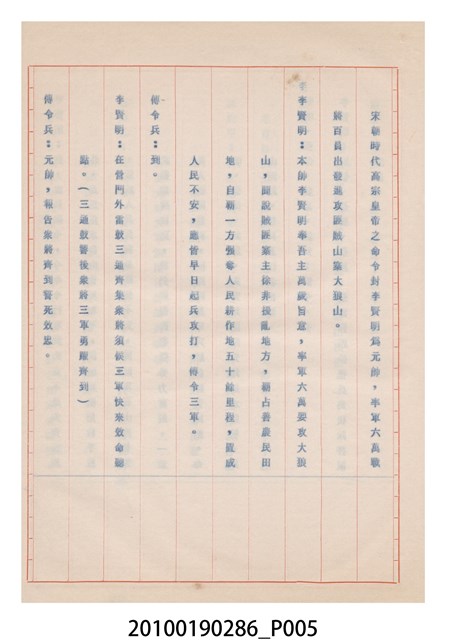 宋朝時代高宗皇帝之命令封李賢明爲元帥,率軍六萬戰
將百員出發進攻匪賊山寨大狼山。
李賢明:本帥李賢明奉吾主萬歲旨意,率軍六萬要攻大狼
山,聞說賊匪寨主徐非擾亂地方,霸占善農民田
地,自霸一方強奪人民耕作地五十餘里程,威
人民不安,應皆早日起兵攻打,傳令三軍。
傳令兵:到。
李賢明:在營門外當鼓三通齊集衆將須候三軍快來效命聽
點。(三通鼓響後衆將三軍勇躍齊到)
傳令兵:元帥,報告衆將齊到誓死效忠。
20100190286_P005